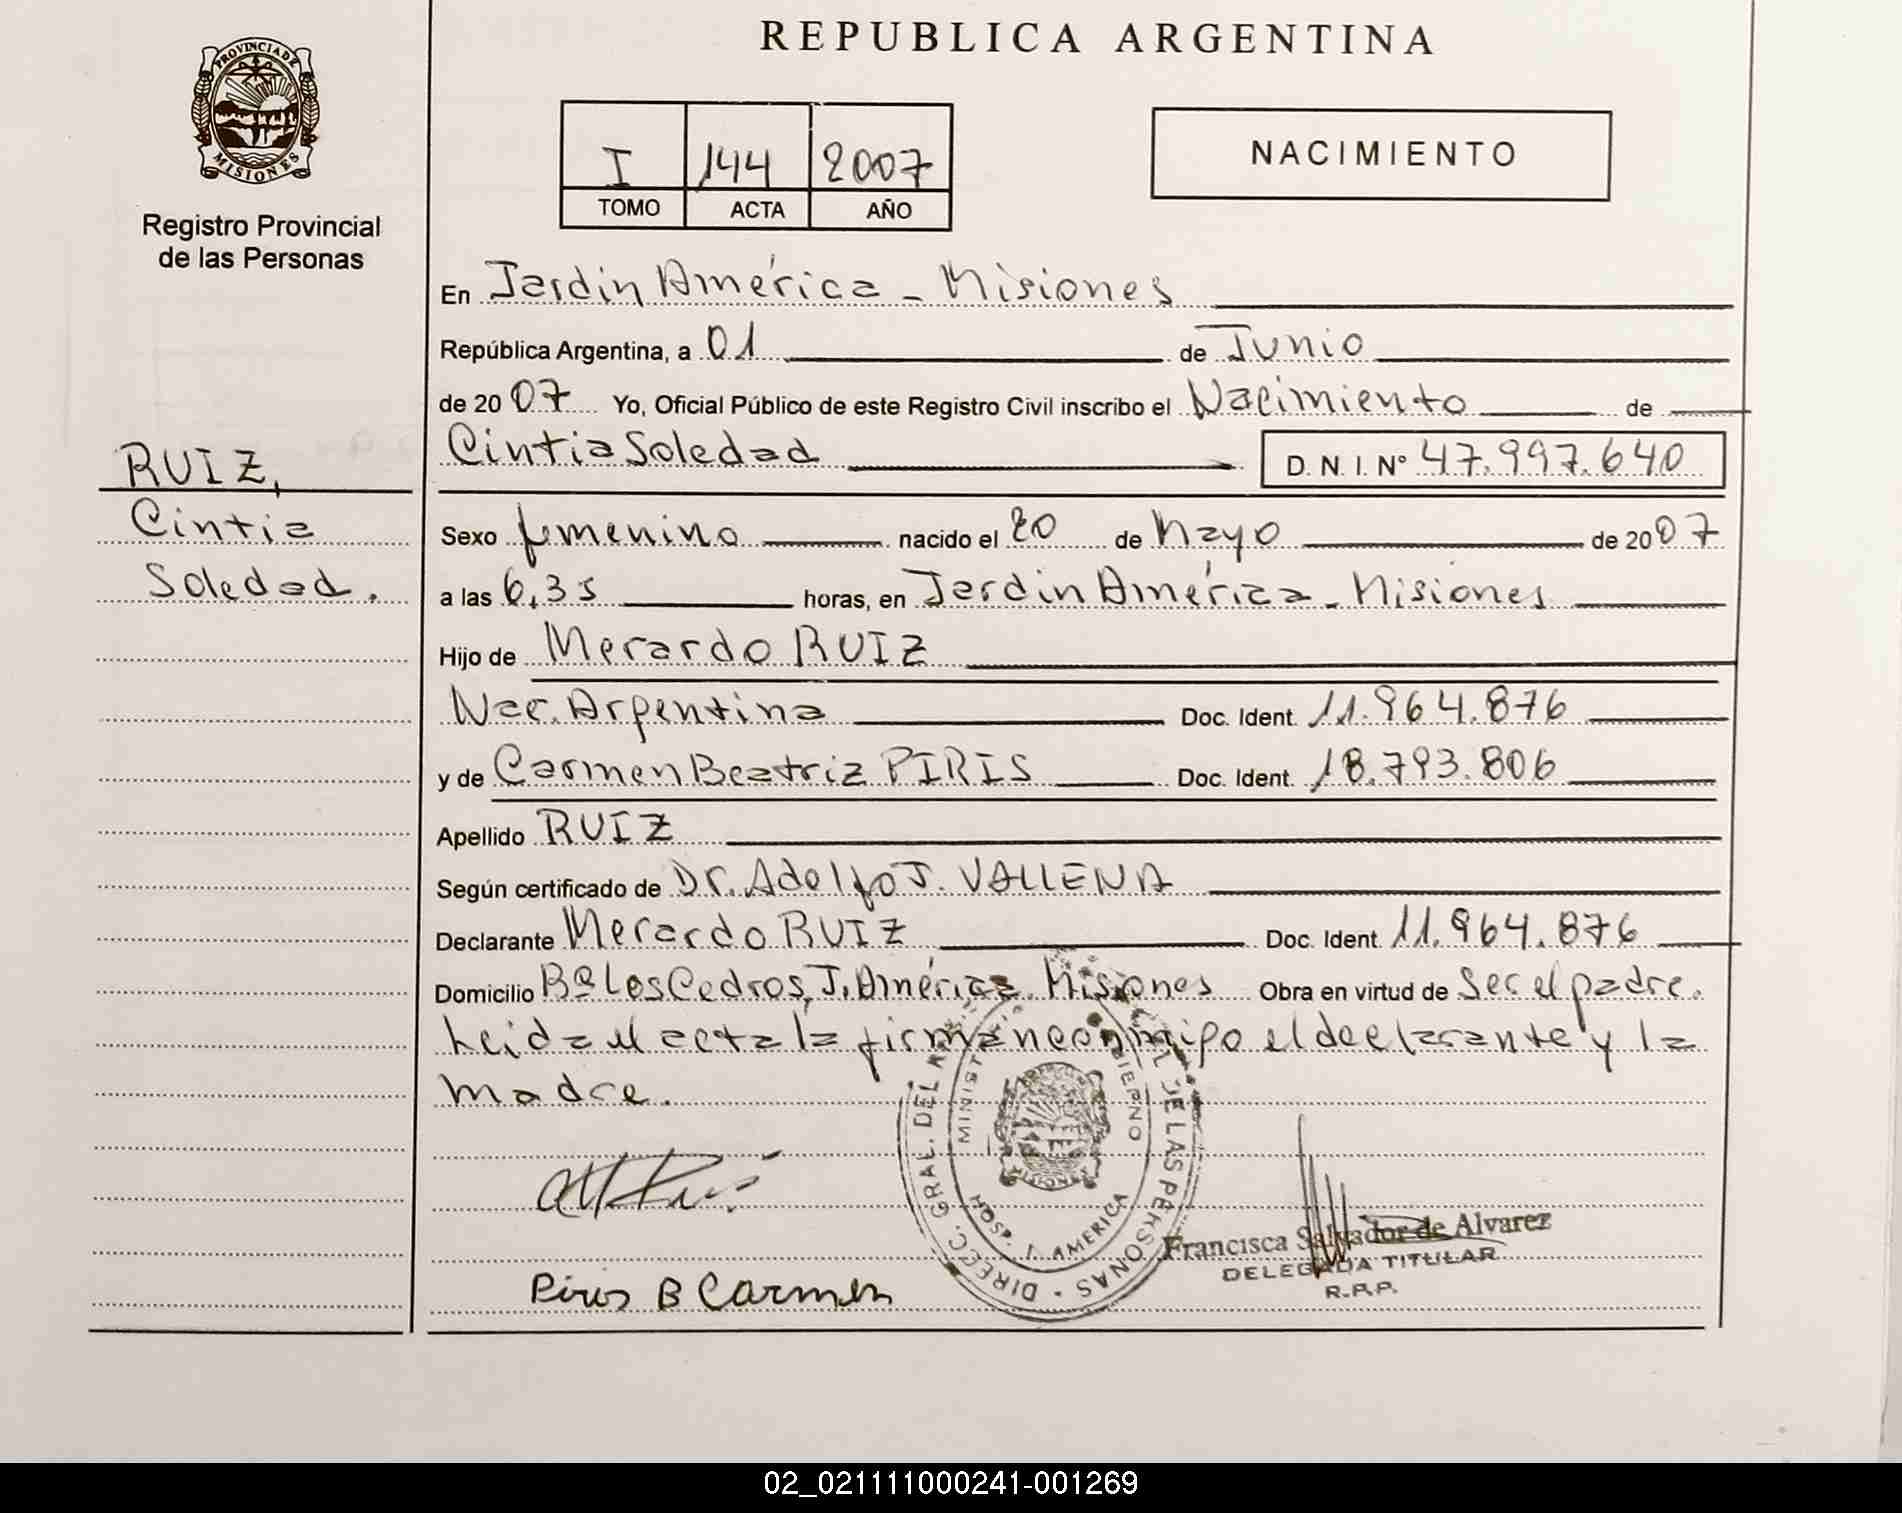 REPUBLICA ARGENTINA
PROVINCIA DE
MISIONES
Registro Provincial
de las Personas
I 144 2007
TOMO ACTA AÑO
NACIMIENTO
En Jardin América - Misiones
República Argentina, a 01 de Junio
de 2007 Yo, Oficial Público de este Registro Civil inscribo el Nacimiento de
Cintia Soledad D. N. I. Nº 47.997.640
RUIZ,
Cintia
Soledad.
Sexo femenino nacido el 20 de Mayo de 2007
a las 6,35 horas, en Jardin América - Misiones
Hijo de Merardo RUIZ
Nac. Argentina Doc. Ident. 11.964.876
y de Carmen Beatriz PIRIS Doc. Ident. 18.793.806
Apellido RUIZ
Según certificado de Dr. Adolfo J. VALLENA
Declarante Merardo RUIZ Doc. Ident 11.964.876
Domicilio Bº Los Cedros, J. América. Misiones Obra en virtud de Ser el padre.
Leida el acta la firman conmigo el declarante y la
madre.
DIREC. GRAL. DEL DE LAS PERSONAS
MINIST BIERNO
MISIONES
HOSP. J. AMERICA
Piris B Carmen
Francisca Salvador de Alvarez
DELEGADA TITULAR
R.P.P.
02_021111000241-001269